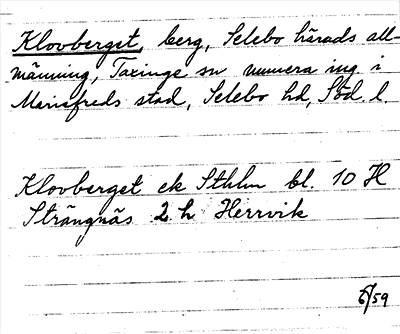 Klovberget, berg, Selebo härads all-
männing, Taxinge sn numera ing i
Mariefreds stad, Selebo hd, Söd. l.
Klovberget ek Sthlm bl. 10 H
Strängnäs 2 h Herrvik
6/59